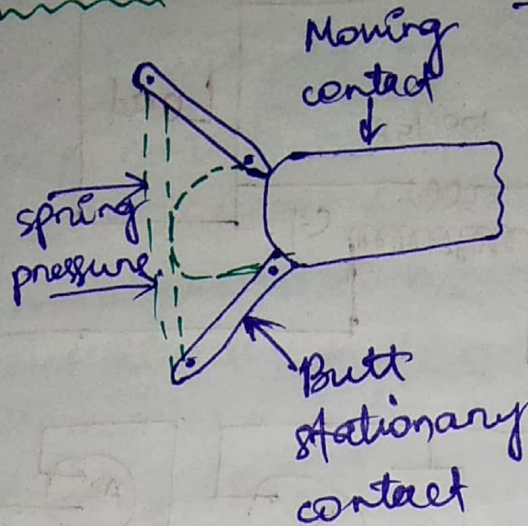 Moving
contact
spring
pressure
Butt
stationary
contact